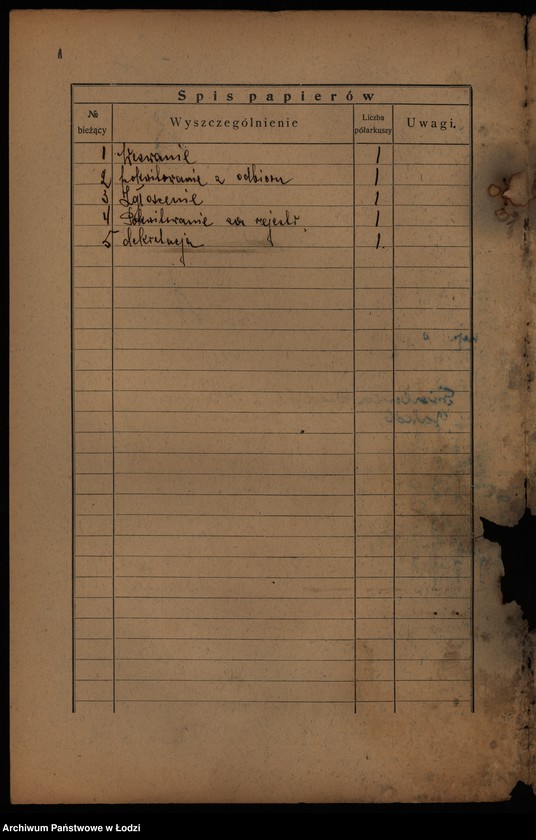 Spis papierów
№ bieżący
Wyszczególnienie
Liczba półarkuszy
Uwagi.
1 Wezwanie 1
2 Pokwitowanie z odbioru 1
3 Zgłoszenie 1
4 Pokwitowanie za rejestr. 1
5 dekretacja 1.
Archiwum Państwowe w Łodzi